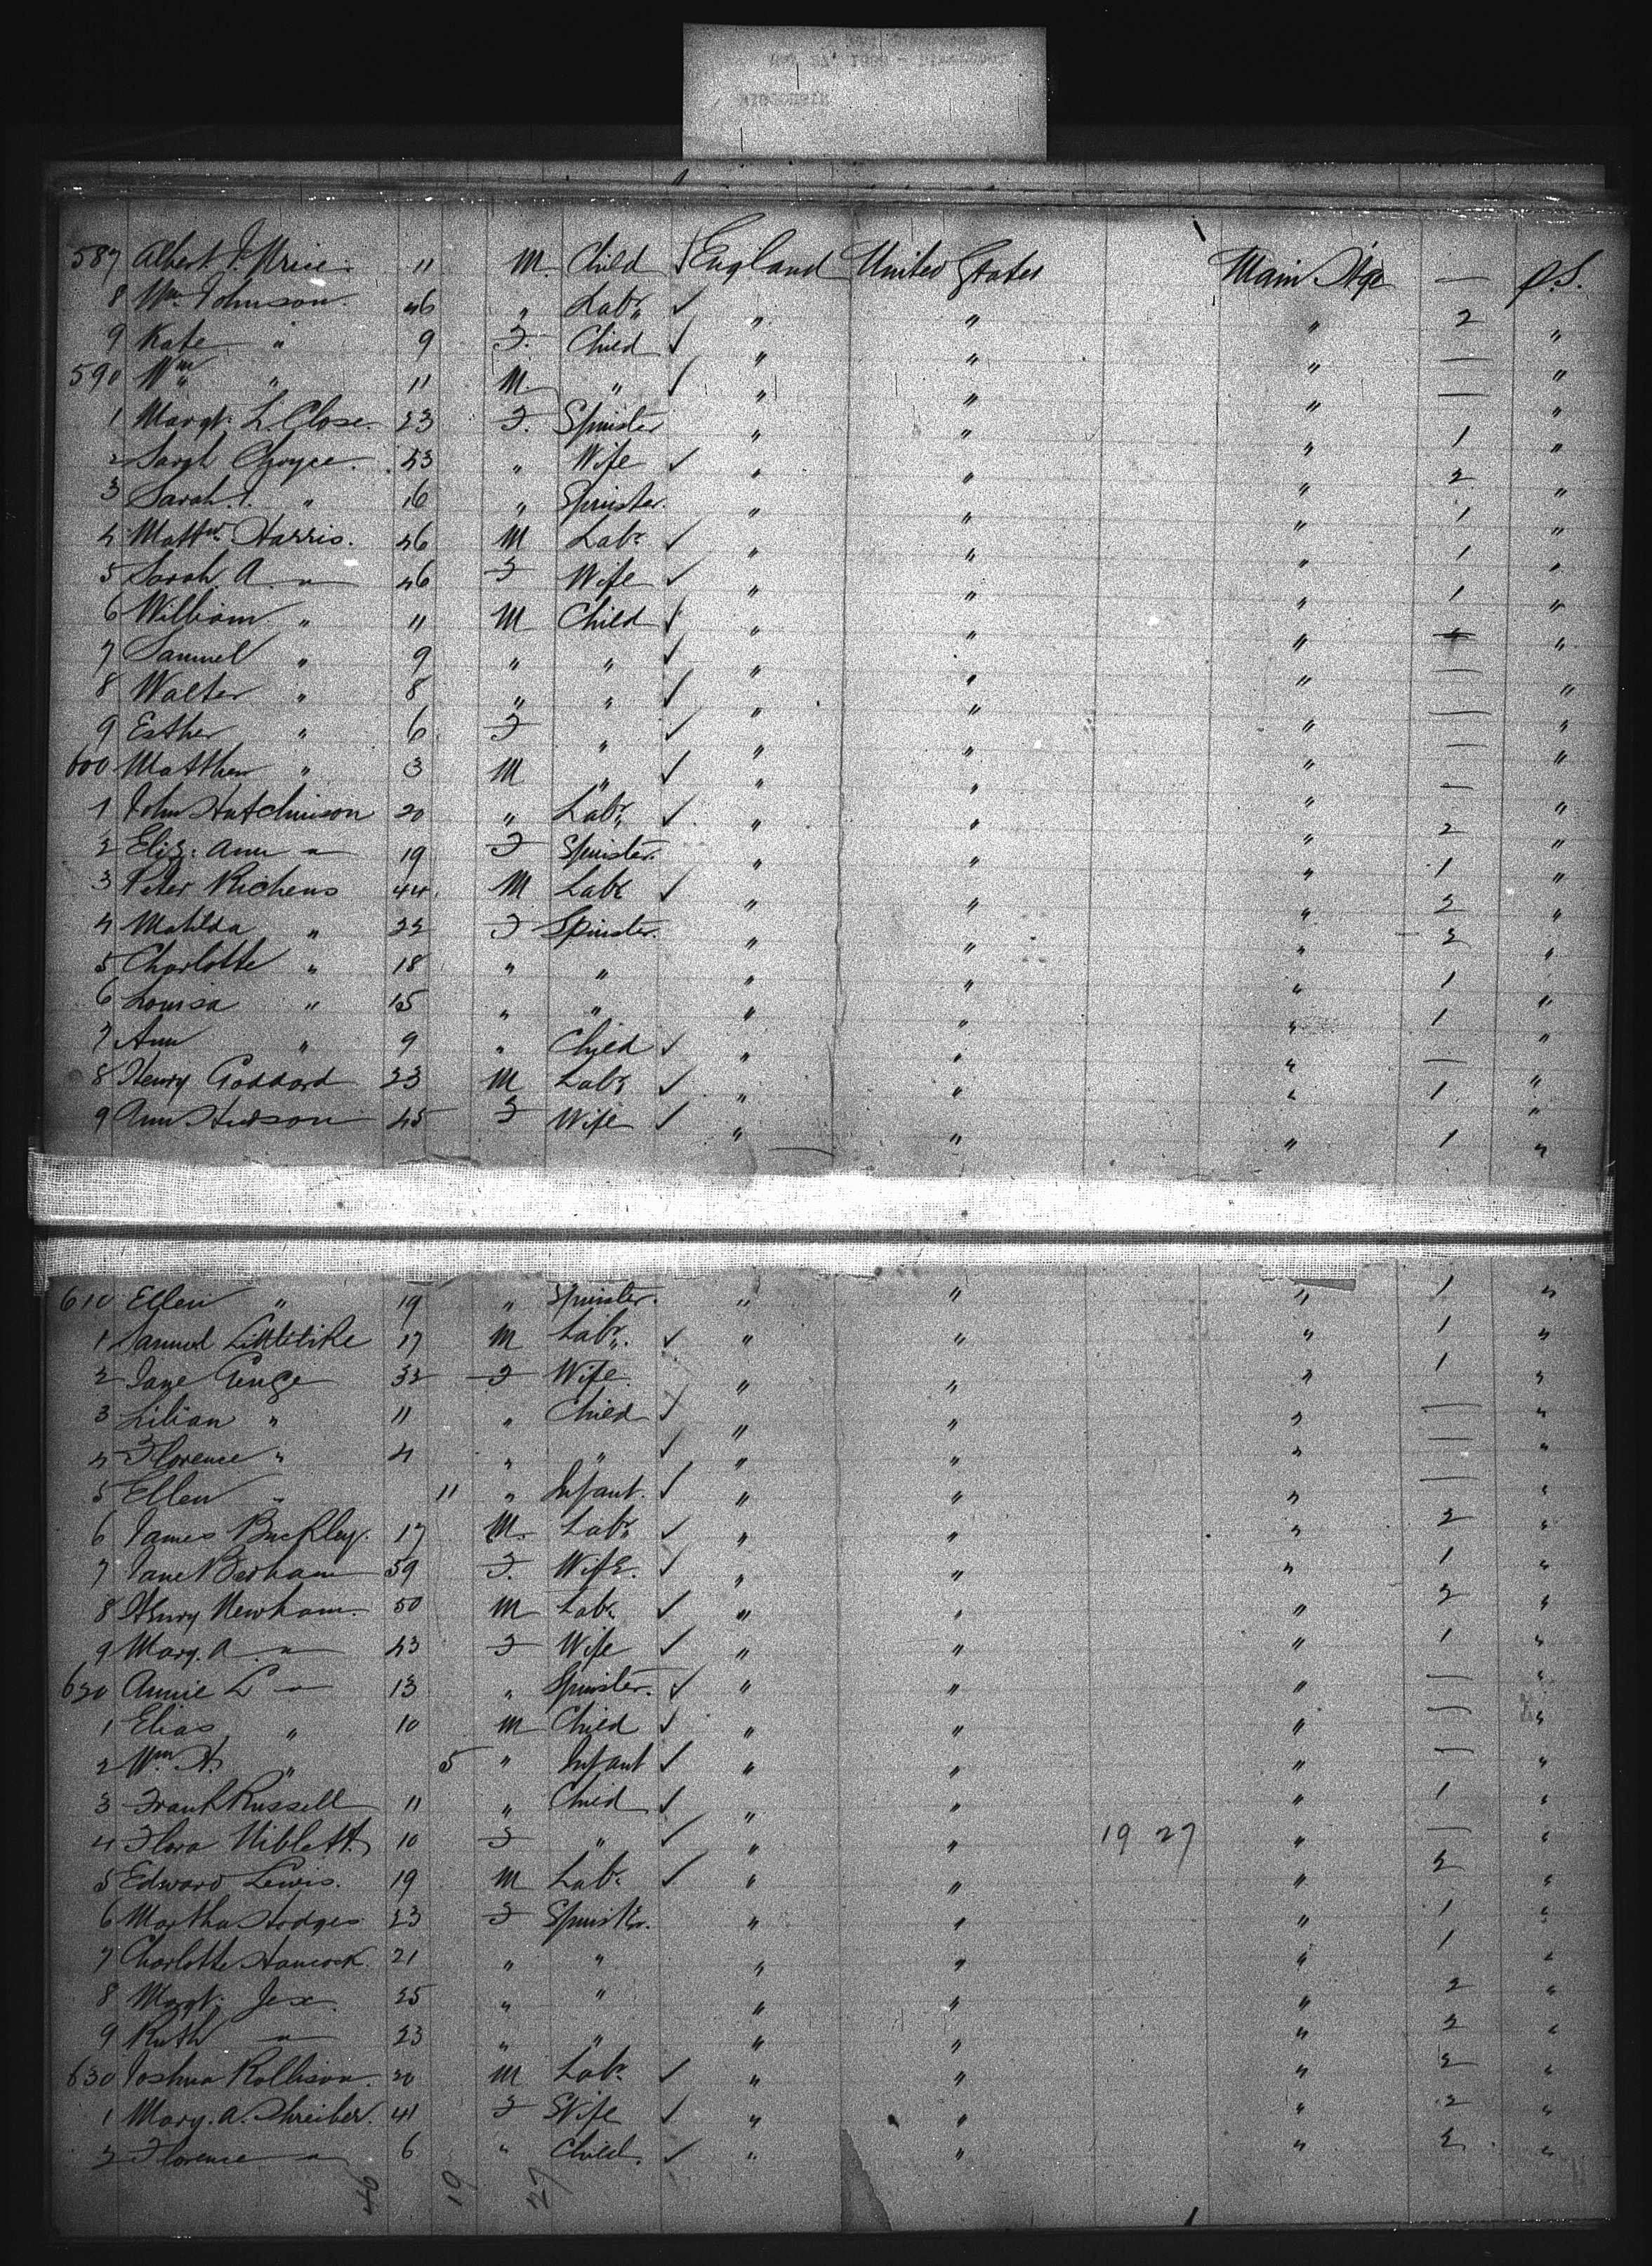 587 Albert J. Price 11 M. Child ✓ England United States Main Stge — P.S.
8 Wm Johnson. 46 " Labr. ✓ " " " 2 "
9 Kate " 9 F. Child ✓ " " " — "
590 Wm " 11 M. " ✓ " " " — "
1 Margt. L. Close. 23 F. Spinster " " " 1 "
2 Sarah Choyce. 43 " Wife ✓ " " " 2 "
3 Sarah J. " 16 " Spinster. " " " 1 "
4 Mattw. Harris. 46 M Labr ✓ " " " 1 "
5 Sarah A. " 46 F Wife ✓ " " " 1 "
6 William " 11 M Child ✓ " " " "
7 Samuel " 9 " " ✓ " " " — "
8 Walter " 8 " " ✓ " " " — "
9 Esther " 6 F " ✓ " " " — "
600 Matthew " 3 M " ✓ " " " — "
1 John Hutchinson 20 " Labr. ✓ " " " 2 "
2 Eliz: Ann " 19 F Spinster. " " " 1 "
3 Peter Richens 44 M Labr ✓ " " " 2 "
4 Matilda " 22 F Spinster. " " " 2 "
5 Charlotte " 18 " " " " " 1 "
6 Louisa " 15 " " " " " 1 "
7 Ann " 9 " Child ✓ " " " — "
8 Henry Goddard 23 M Labr ✓ " " " 1 "
9 Ann Hudson 45 F Wife ✓ " " " 1 "
610 Ellen " 19 " Spinster. " " " 1 "
1 Samuel 17 M Labr. ✓ " " " 1 "
2 Jane Genge 32 F Wife. " " " 1 "
3 Lilian " 11 " Child ✓ " " " — "
4 Florence " 4 " " ✓ " " " — "
5 Ellen " 11 " Infant. ✓ " " " — "
6 James Buckley. 17 M. Labr. ✓ " " " 2 "
7 Jane 59 F. Wife. ✓ " " " 1 "
8 Henry Newham. 50 M Labr ✓ " " " 2 "
9 Mary. A. " 43 F Wife ✓ " " " 1 "
620 Annie L " 13 " Spinster. ✓ " " " — "
1 Elias " 10 M Child ✓ " " " — "
2 Wm. H. " 5 " Infant ✓ " " " — "
3 Frank Russell 11 " Child ✓ " " " 1 "
4 Flora Niblett. 10 F " ✓ " " 19 27 " — "
5 Edward Lewis. 19 M Labr ✓ " " " 2 "
6 Martha Hodges 23 F Spinster. " " " 1 "
7 Charlotte Hancock. 21 " " " " " 1 "
8 Margt. Jex. 25 " " " " " 2 "
9 Ruth " 23 " " " " " 2 "
630 Joshua Rollison. 20 M Labr. ✓ " " " 2 "
1 Mary. A. Shreiber. 41 F Wife ✓ " " " 2 "
2 Florence " 6 " Child. ✓ " " " 2 "
19 27